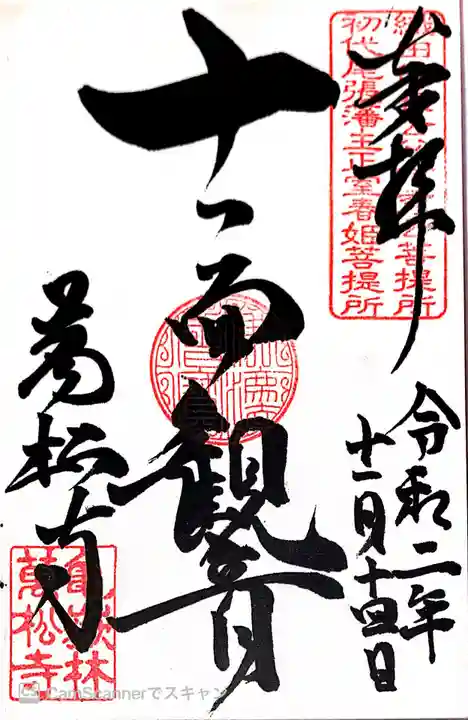 奉拝
初代尾張藩主正室春姫菩提所
令和二年
十一月十四日
十一面観音
萬松寺
亀嶽林
萬松寺
CamScannerでスキャン